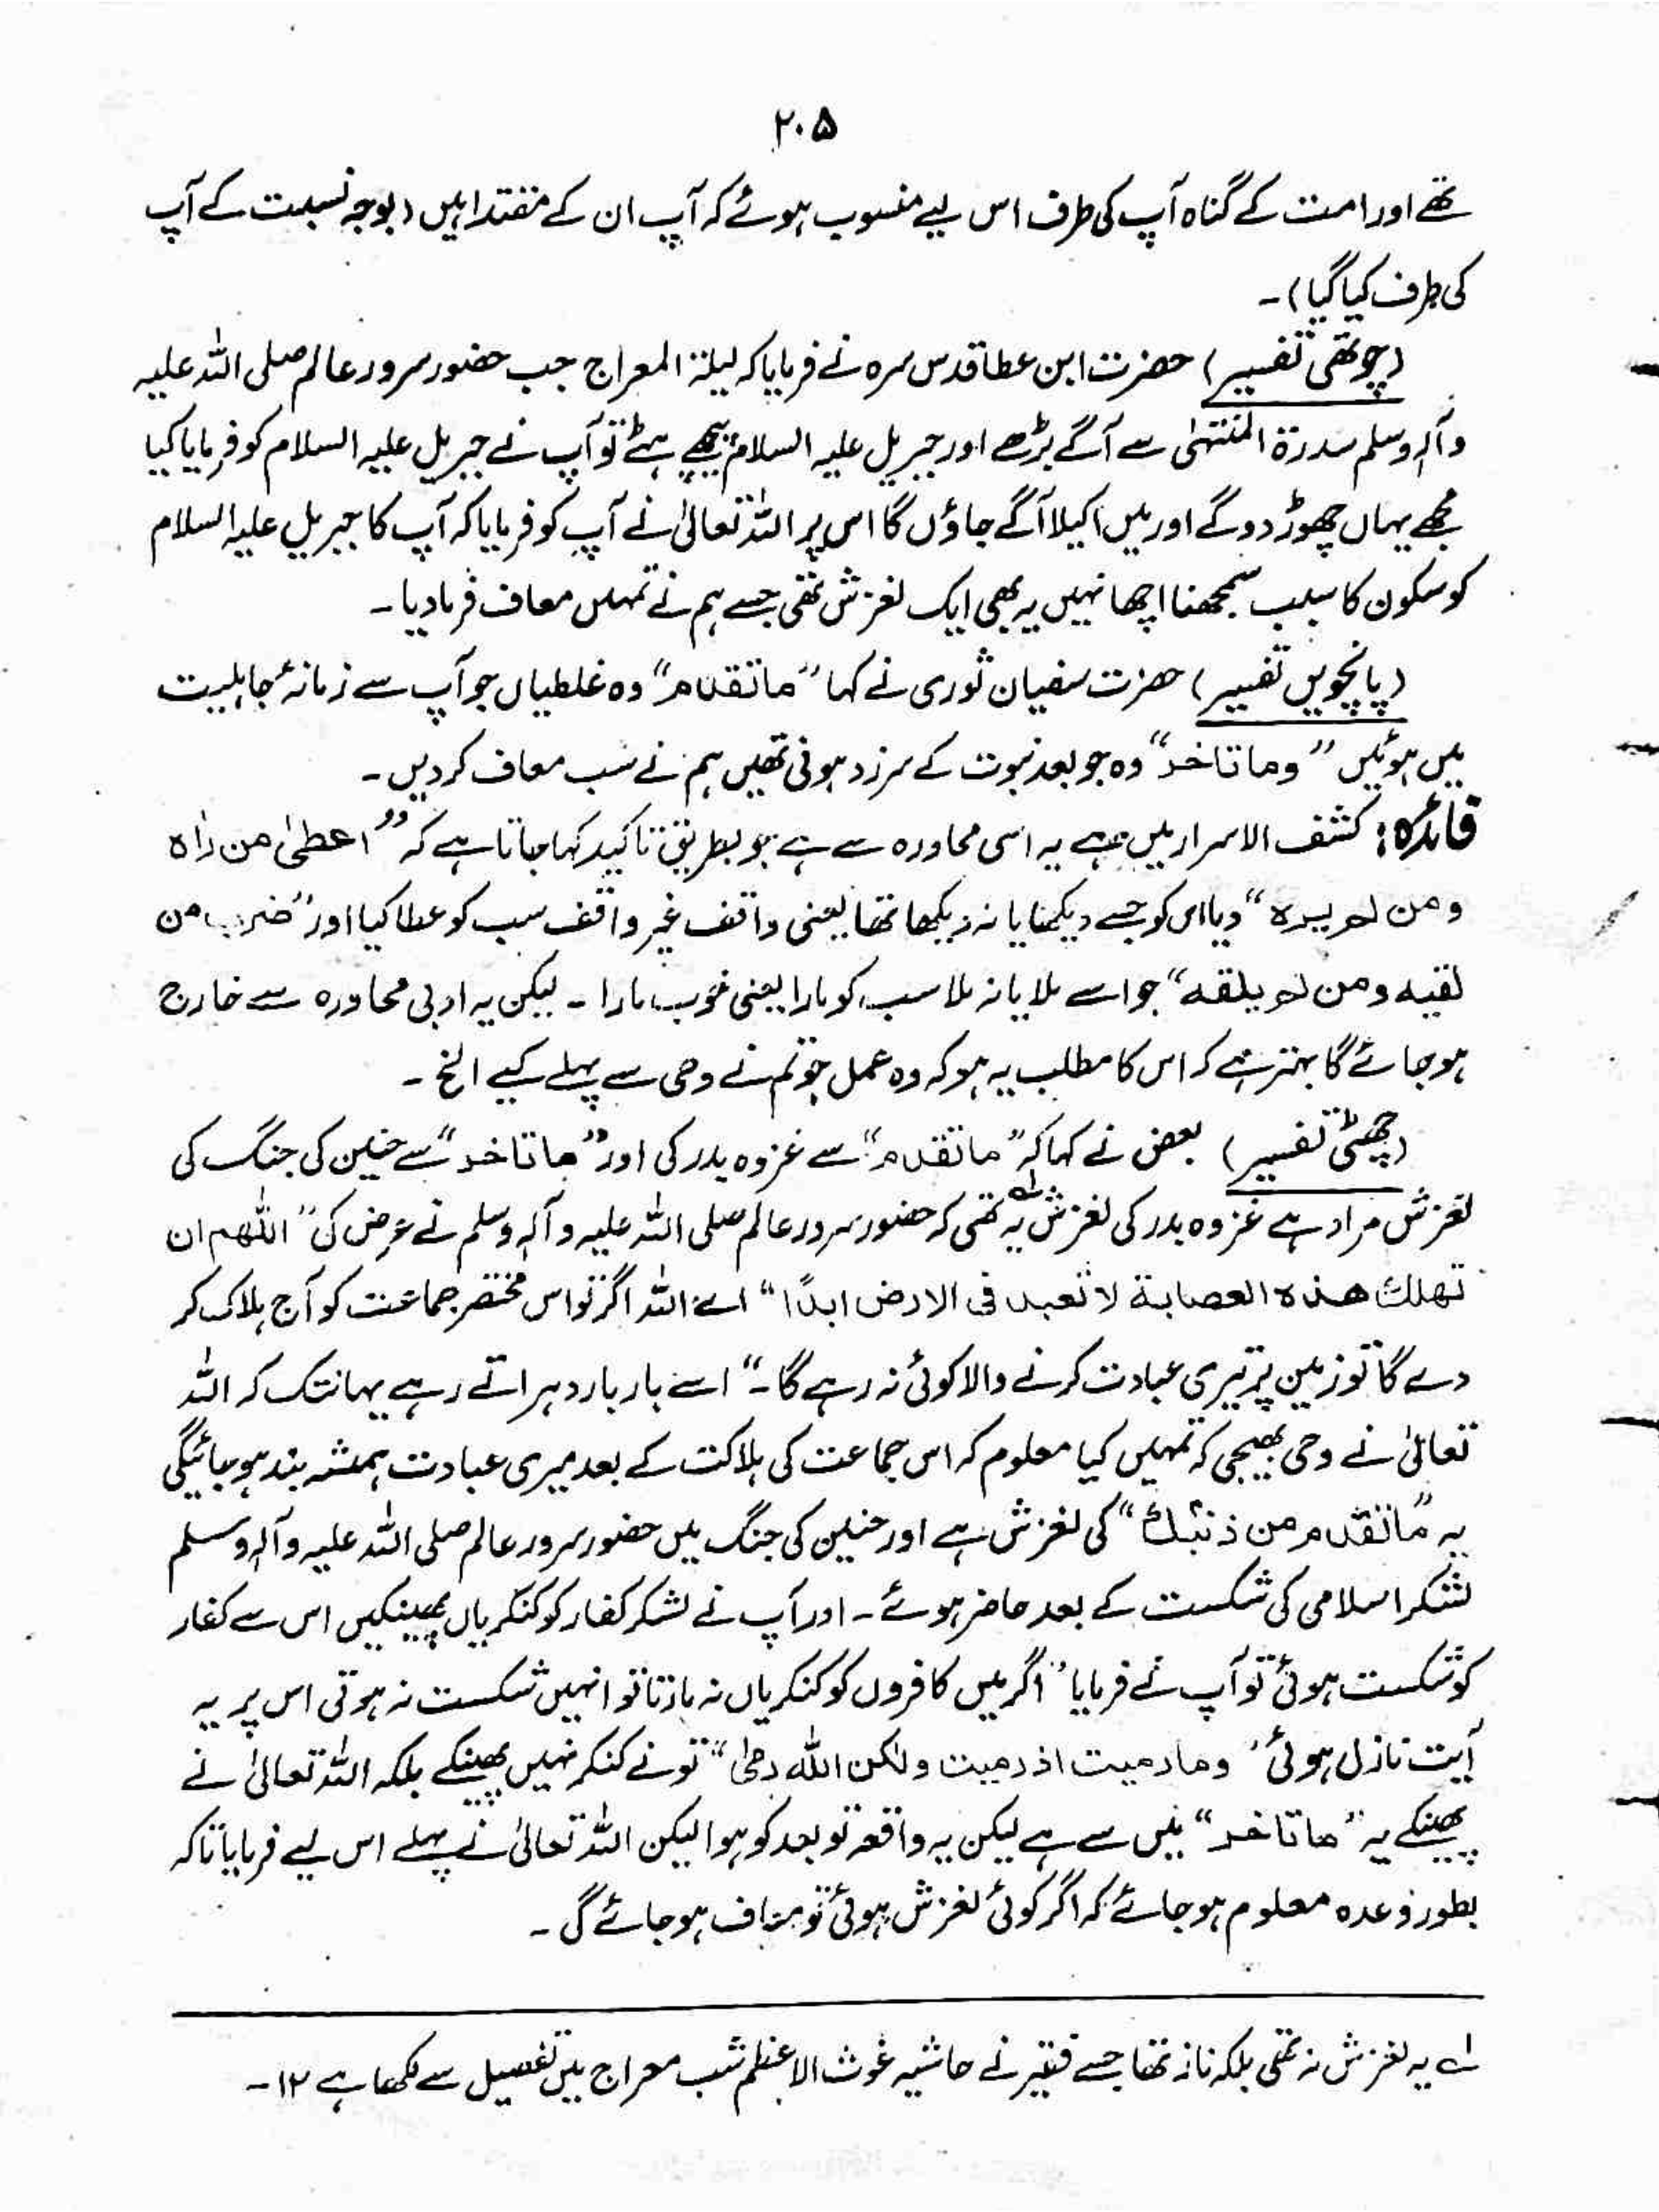 ۲۰۵
تھے اور امت کے گناہ آپ کی طرف اس لیے منسوب ہوئے کہ آپ ان کے مقتدا ہیں (بوجہ نسبت کے آپ
کی طرف کیا گیا)۔
(چوتھی تفسیر) حضرت ابن عطا قدس سرہ نے فرمایا کہ لیلۃ المعراج جب حضور سرور عالم صلی اللہ علیہ
وآلہٖ وسلم سدرۃ المنتہیٰ سے آگے بڑھے اور جبریل علیہ السلام پیچھے ہٹے تو آپ نے جبریل علیہ السلام کو فرمایا کیا
مجھے یہاں چھوڑ دو گے اور میں اکیلا آگے جاؤں گا اس پر اللہ تعالیٰ نے آپ کو فرمایا کہ آپ کا جبریل علیہ السلام
کو سکون کا سبب سمجھنا اچھا نہیں یہ بھی ایک لغزش تھی جسے ہم نے تمہیں معاف فرما دیا۔
(پانچویں تفسیر) حضرت سفیان ثوری نے کہا ”ما تقدم“ وہ غلطیاں جو آپ سے زمانۂ جاہلیت
میں ہوئیں ”وما تاخر“ وہ جو بعد نبوت کے سرزد ہوئی تھیں ہم نے سب معاف کر دیں۔
فائدہ: کشف الاسرار میں ہے یہ اسی محاورہ سے ہے جو بطریق تاکید کہا جاتا ہے کہ ”اعطیٰ من راٰہ
ومن لم یرہ“ دیا اس کو جسے دیکھا یا نہ دیکھا تھا یعنی واقف غیر واقف سب کو عطا کیا اور ”ضرب من
لقیہ ومن لم یلقہ“ جو اسے ملا یا نہ ملا سب کو مارا یعنی خوب مارا۔ لیکن یہ ادبی محاورہ سے خارج
ہو جائے گا بہتر ہے کہ اس کا مطلب یہ ہو کہ وہ عمل جو تم نے وحی سے پہلے کیے الخ۔
(چھٹی تفسیر) بعض نے کہا کہ ”ما تقدم“ سے غزوہ بدر کی اور ”ما تاخر“ سے حنین کی جنگ کی
لغزش مراد ہے غزوہ بدر کی لغزش یہ تھی کہ حضور سرور عالم صلی اللہ علیہ وآلہٖ وسلم نے عرض کی ”اللھم ان
تھلك ھذہ العصابة لا تعبد فی الارض ابدًا“ اے اللہ اگر تو اس مختصر جماعت کو آج ہلاک کر
دے گا تو زمین پر تیری عبادت کرنے والا کوئی نہ رہے گا۔“ اسے بار بار دہراتے رہے یہانتک کہ اللہ
تعالیٰ نے وحی بھیجی کہ تمہیں کیا معلوم کہ اس جماعت کی ہلاکت کے بعد میری عبادت ہمشہ بند ہو جائیگی
یہ ”ما تقدم من ذنبك“ کی لغزش ہے اور حنین کی جنگ میں حضور سرور عالم صلی اللہ علیہ وآلہٖ وسلم
لشکر اسلامی کی شکست کے بعد حاضر ہوئے۔ اور آپ نے لشکر کفار کو کنکریاں پھینکیں اس سے کفار
کو شکست ہوئی تو آپ نے فرمایا ”اگر میں کافروں کو کنکریاں نہ مارتا تو انہیں شکست نہ ہوتی اس پر یہ
آیت نازل ہوئی ’ وما رمیت اذ رمیت ولٰکن اللہ رمیٰ“ تو نے کنکر نہیں پھینکے بلکہ اللہ تعالیٰ نے
پھینکے یہ ”ما تاخر“ میں سے ہے لیکن یہ واقعہ تو بعد کو ہوا لیکن اللہ تعالیٰ نے پہلے اس لیے فرمایا تاکہ
بطور وعدہ معلوم ہو جائے کہ اگر کوئی لغزش ہوئی تو معاف ہو جائے گی۔
لے یہ لغزش نہ تھی بلکہ ناز تھا جسے فقیر نے حاشیہ غوث الاعظم شب معراج میں تفصیل سے لکھا ہے ۱۲۔